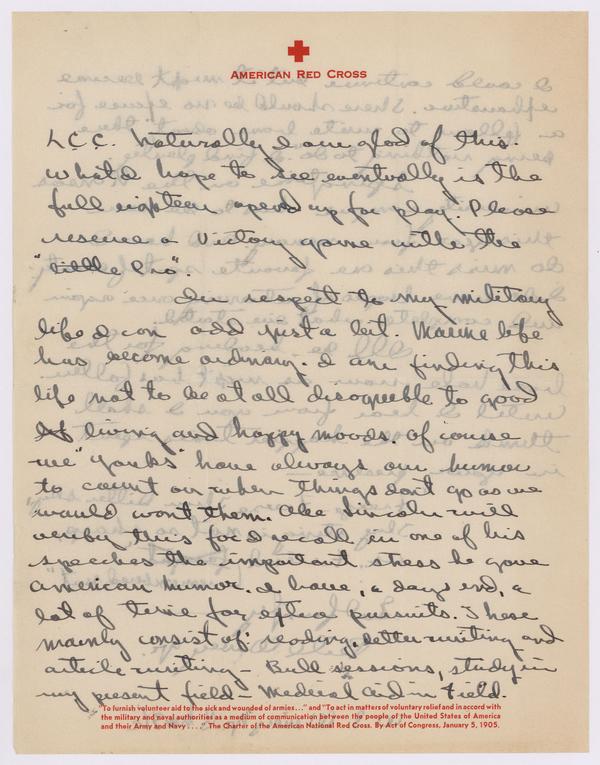 AMERICAN RED CROSS
L C C. Naturally I am glad of this.
What I hope to see eventually is the
full eighteen opened up for play. Please
reserve a Victory game with the
"little Pro".
In respect to my military
life I can add just a bit. Marine life
has become ordinary. I am finding this
life not to be at all disagreeable to good
living and happy moods. Of course
we "Yanks" have always our humor
to count on when things don't go as we
would want them. Abe Lincoln will
verify this for I recall in one of his
speeches the important stress he gave
American humor. I have, a days end, a
lot of time for extra pursuits. These
mainly consist of: reading, letter writing and
article writing - Bull sessions, study in
my present field - Medical aid in Field.
"To furnish volunteer aid to the sick and wounded of armies..." and "To act in matters of voluntary relief and in accord with
the military and naval authorities as a medium of communication between the people of the United States of America
and their Army and Navy...." The Charter of the American National Red Cross. By Act of Congress, January 5, 1905.